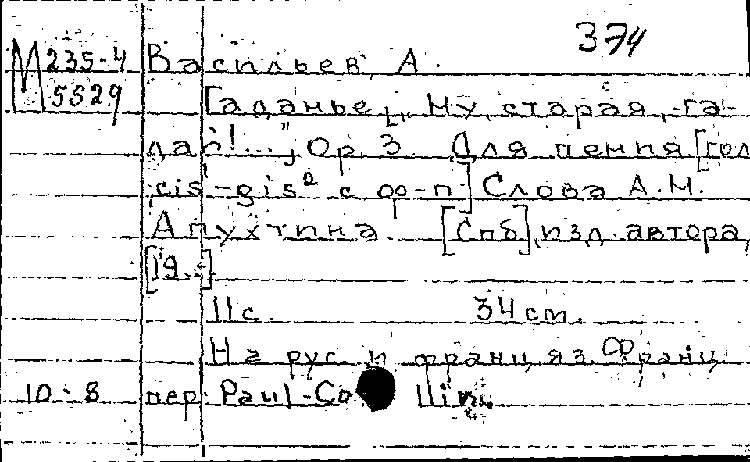 374
М 235-4 Васильев, А.
5529 Гаданье „Ну, старая, га-
дай!...", Ор. 3 Для пения [гол.
cis¹-gis² с ф-п.] Слова А.Н.
Апухтина. [Спб], изд. автора,
[19..]
11 с. 34 см.
На рус. и франц. яз. Франц.
10-8 пер. Paul-Co